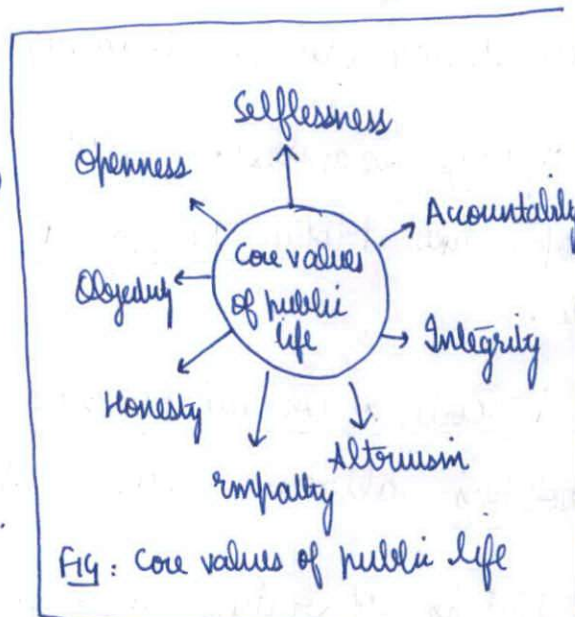 Selflessness
Openness
Accountability
Core values
of public
life
Objectivity
Integrity
Honesty
Altruism
Empathy
Fig: Core values of public life